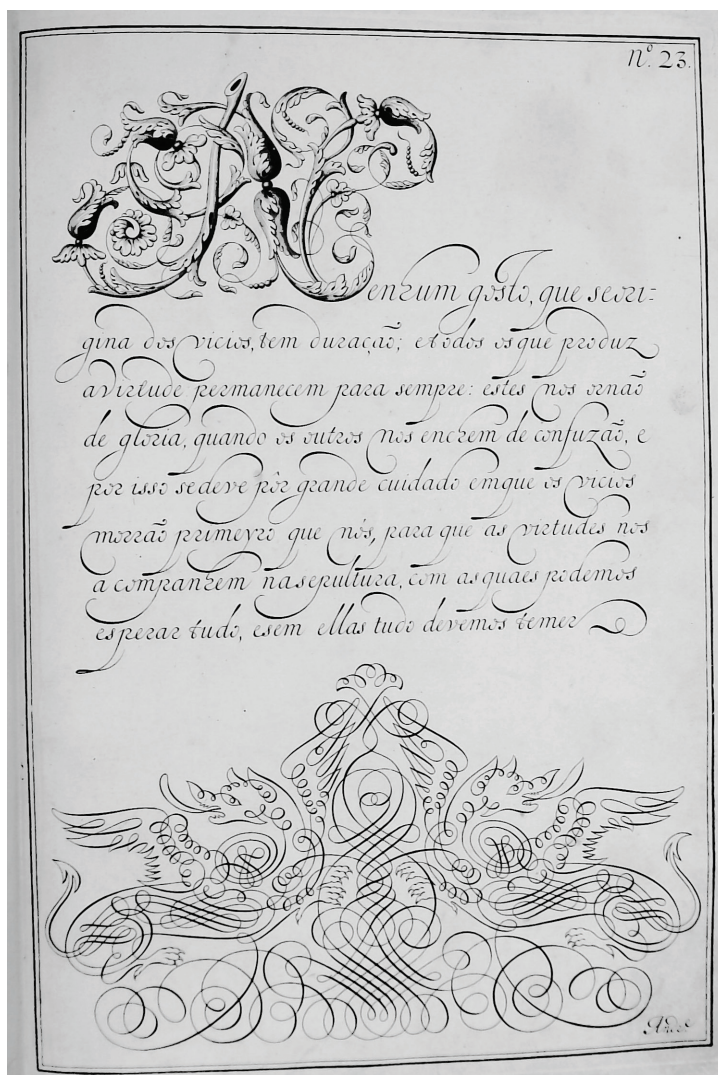 Nº. 23.
Nenhum gosto, que se ori=
gina dos vicios, tem duração; e todos os que produz
a virtude permanecem para sempre: estes nos ornão
de gloria, quando os outros nos enchem de confuzão, e
por isso se deve pôr grande cuidado em que os vicios
morrão primeyro que nós, para que as virtudes nos
a companhem na sepultura, com as quaes podemos
esperar tudo, e sem ellas tudo devemos temer